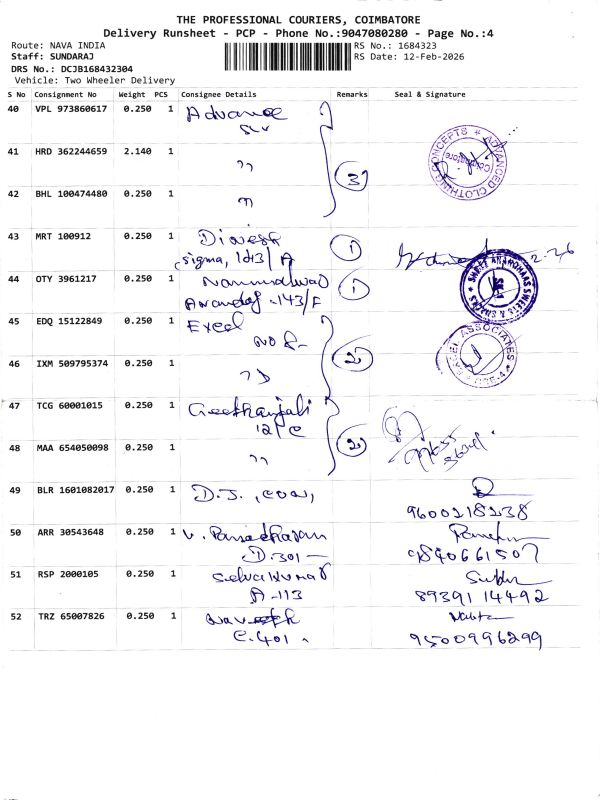 THE PROFESSIONAL COURIERS, COIMBATORE
Delivery Runsheet - PCP - Phone No.:9047080280 - Page No.:4
Route: NAVA INDIA
RS No.: 1684323
Staff: SUNDARAJ
RS Date: 12-Feb-2026
DRS No.: DCJB168432304
Vehicle: Two Wheeler Delivery
S No Consignment No Weight PCS Consignee Details Remarks Seal & Signature
40 VPL 973860617 0.250 1 Advance
41 HRD 362244659 2.140 1 " 3
ADVANCED CLOTHING CONCEPTS Coimbatore
42 BHL 100474480 0.250 1 "
43 MRT 100912 0.250 1 Dinesh 1
Sigma, 143/A
44 OTY 3961217 0.250 1 Nammalwar 1
Anandas -143/F
SHREE ANANDHAAS SWEETS & SNACKS
45 EDQ 15122849 0.250 1 Excel
NO 8-
EXCEL ASSOCIATES CBE-4
46 IXM 509795374 0.250 1 " 2
47 TCG 60001015 0.250 1 Geethanjali
12/C
48 MAA 654050098 0.250 1 " 2
49 BLR 1601082017 0.250 1 D.J.
9600218238
50 ARR 30543648 0.250 1
D.301 -
9840661507
51 RSP 2000105 0.250 1 Selvakumar
A-113
8939114492
52 TRZ 65007826 0.250 1
C.401.
9500996299